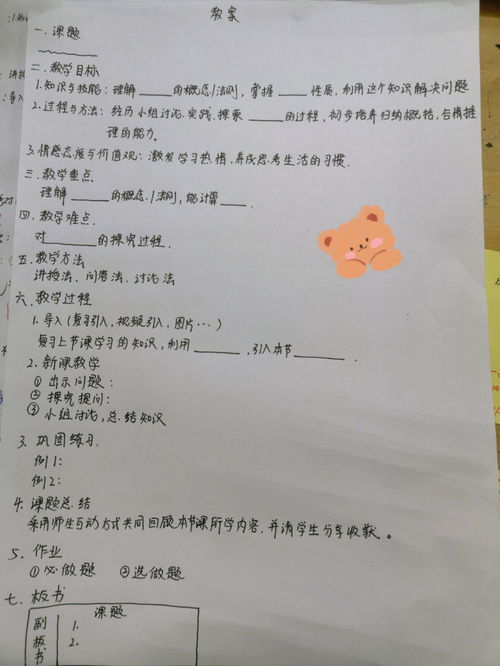 教案
一.课题
二.教学目标
1.知识与技能:理解____的概念/法则,掌握____性质,利用这个知识解决问题
2.过程与方法:经历小组讨论.实践.探索____的过程,初步培养归纳概括,合情推
理的能力。
3.情感态度与价值观:激发学习热情.养成思考生活的习惯.
三.教学重点.
理解____的概念/法则,能计算____.
四.教学难点.
对____的探究过程.
五.教学方法
讲授法、问答法、讨论法
六.教学过程
1.导入(复习引入,视频引入,图片…)
复习上节课学习的知识,利用____,引入本节____.
2.新课教学
①出示问题:
②探究提问:
③小组讨论,总结知识
3.巩固练习.
例1:
例2:
4.课题总结
采用师生互动方式共同回顾本节课所学内容.并请学生分享收获。
5.作业
①必做题 ②选做题
七.板书
课题
副板书
1.
2.